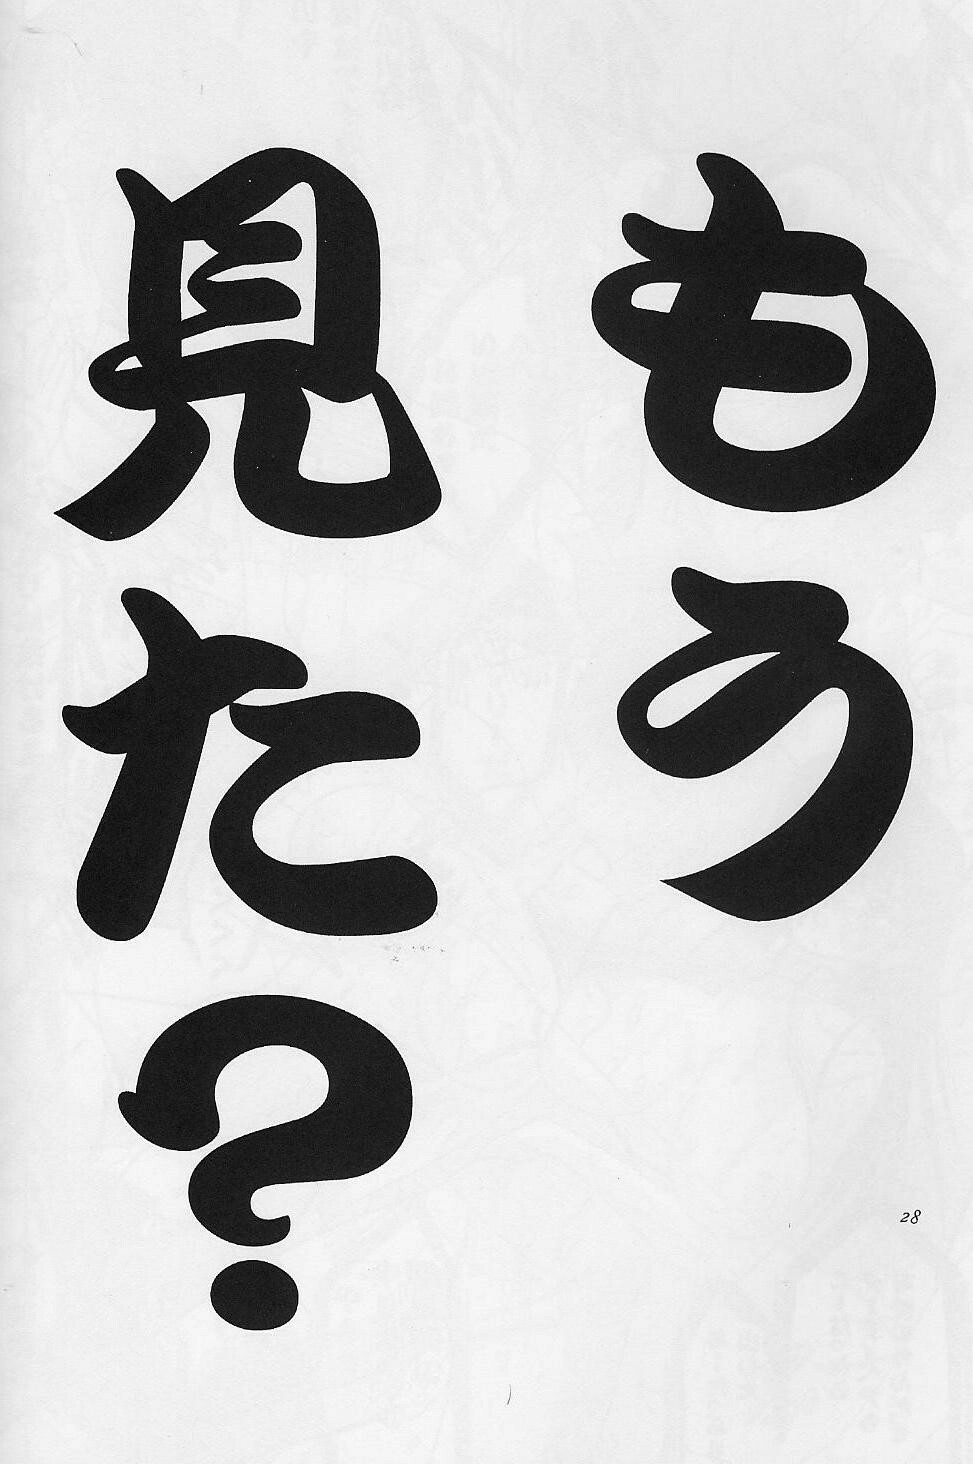 もう
見た?
28